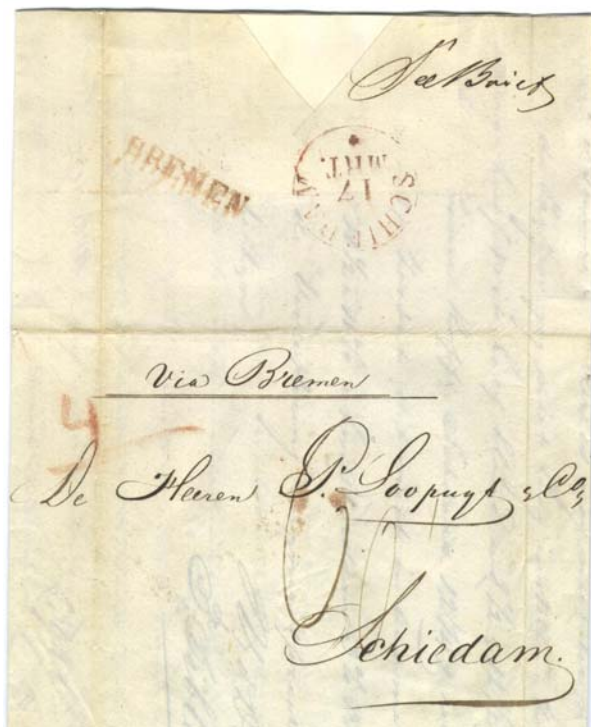 See Brief
BREMEN
SCHIEDAM
17
MRT.
via Bremen
4
De Heeren P. Loopuyt & Co
Schiedam.